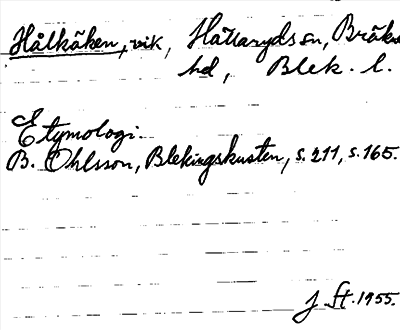 Hålkåken, vik, Hällaryds sn, Bräkne
hd, Blek. l.
Etymologi.
B. Ohlsson, Blekingskusten, s. 211, s. 165.
J. St. 1955.